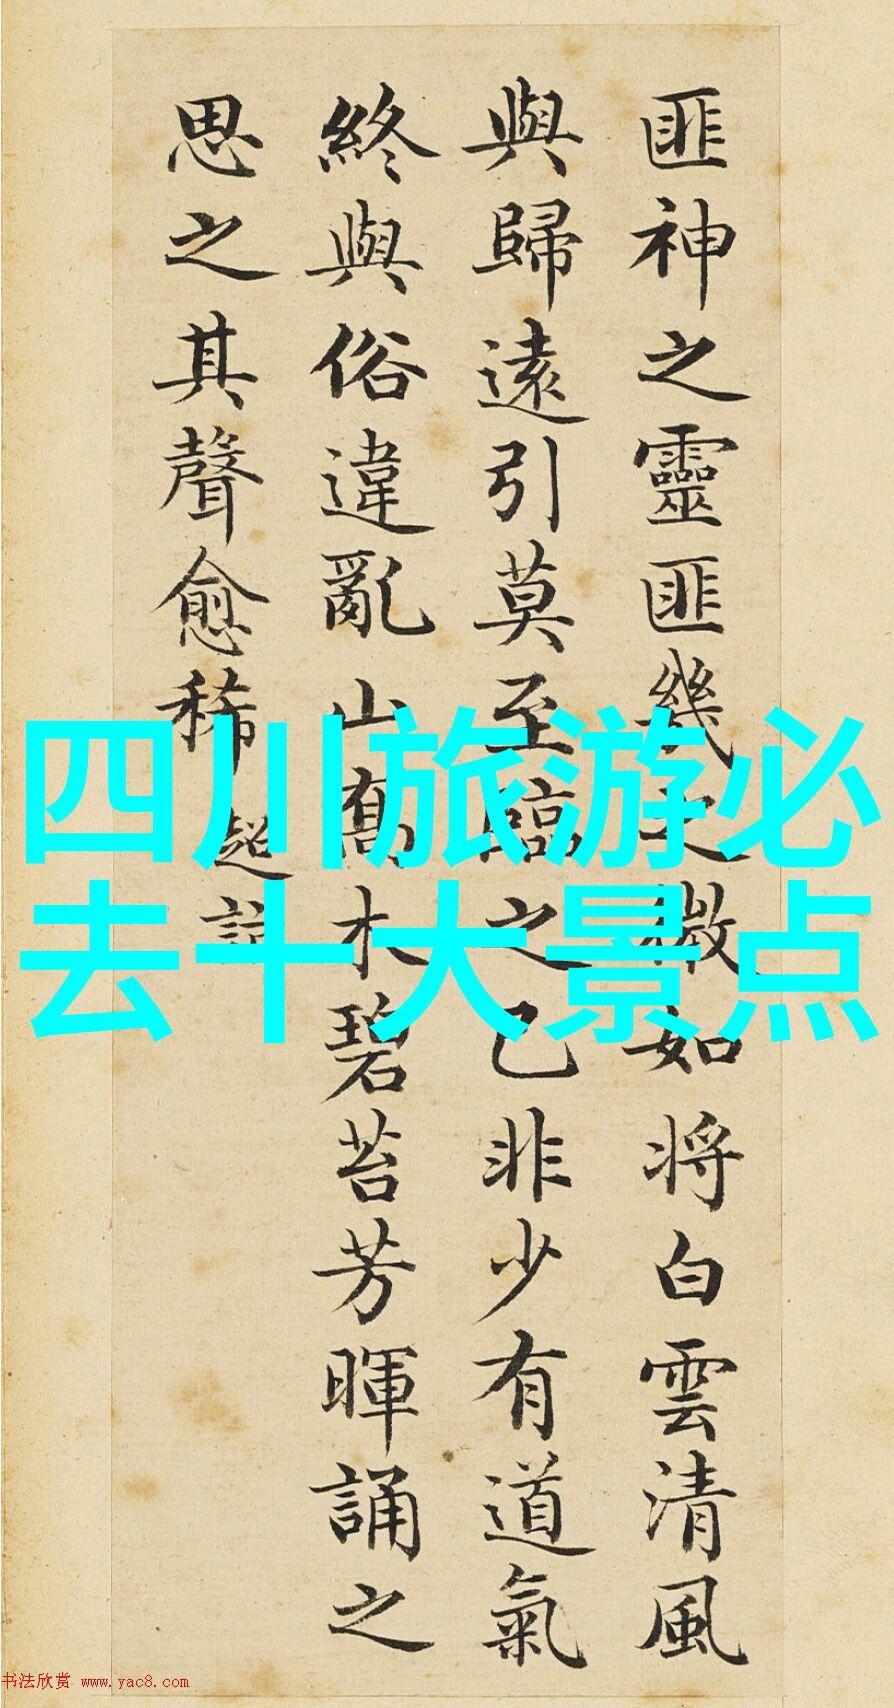 匪神之靈匪幾之微如將白雲清風
與歸遠引莫至臨之已非少有道氣
終與俗違亂山喬木碧苔芳暉誦之
思之其聲愈稀
超
四川旅游必
去十大景点
书法欣赏 www.yac8.com